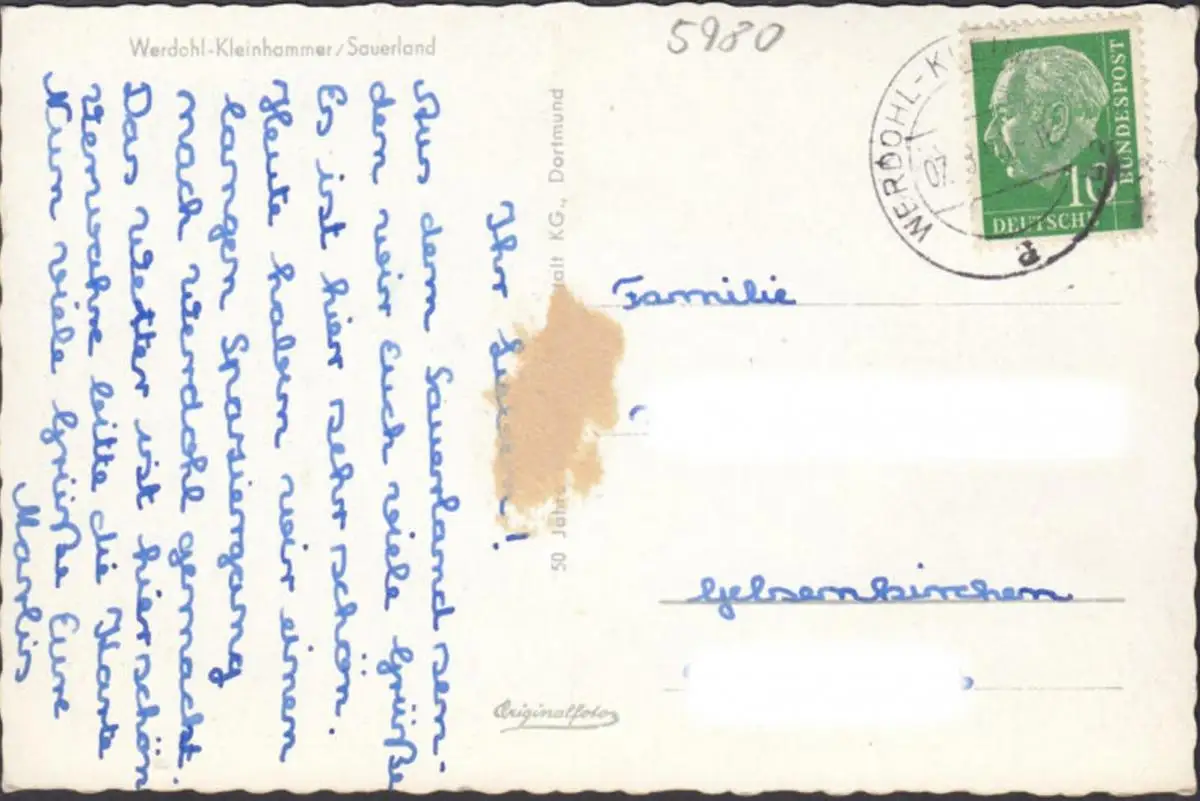 Werdohl-Kleinhammer/Sauerland
5980
Ihr !
Aus dem Sauerland sen-
den wir Euch viele Grüße
Es ist hier sehr schön.
Heute haben wir einen
langen Spasiergang
nach Werdohl gemacht.
Das Wetter ist hier schön
Verwahre bitte die Karte
Nun viele Grüße Eure
Marlis
50 Jahre
talt KG., Dortmund
Originalfoto
WERDOHL-K
07.
a
10
DEUTSCHE
BUNDESPOST
Familie
Gelsenkirchen